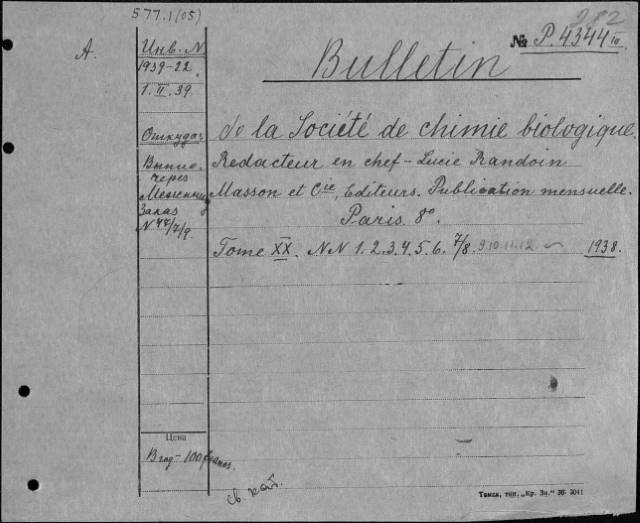 577.1(05)
282
А.
Инв. N
1939-22.
1. II. 39.
№ P.4344 IV
Bulletin
Откуда:
de la Société de chimie biologique.
Redacteur en chef - Lucie Randoin
через
Masson et Cie, Editeurs. Publication mensuelle.
Заказ
Paris. 8°.
Tome XX. NN 1.2.3.4.5.6. 7/8. 9.10.11.12 1938.
Цена
В год - 100 francs.
св кат.
Томск, тип. „Кр. Зн."